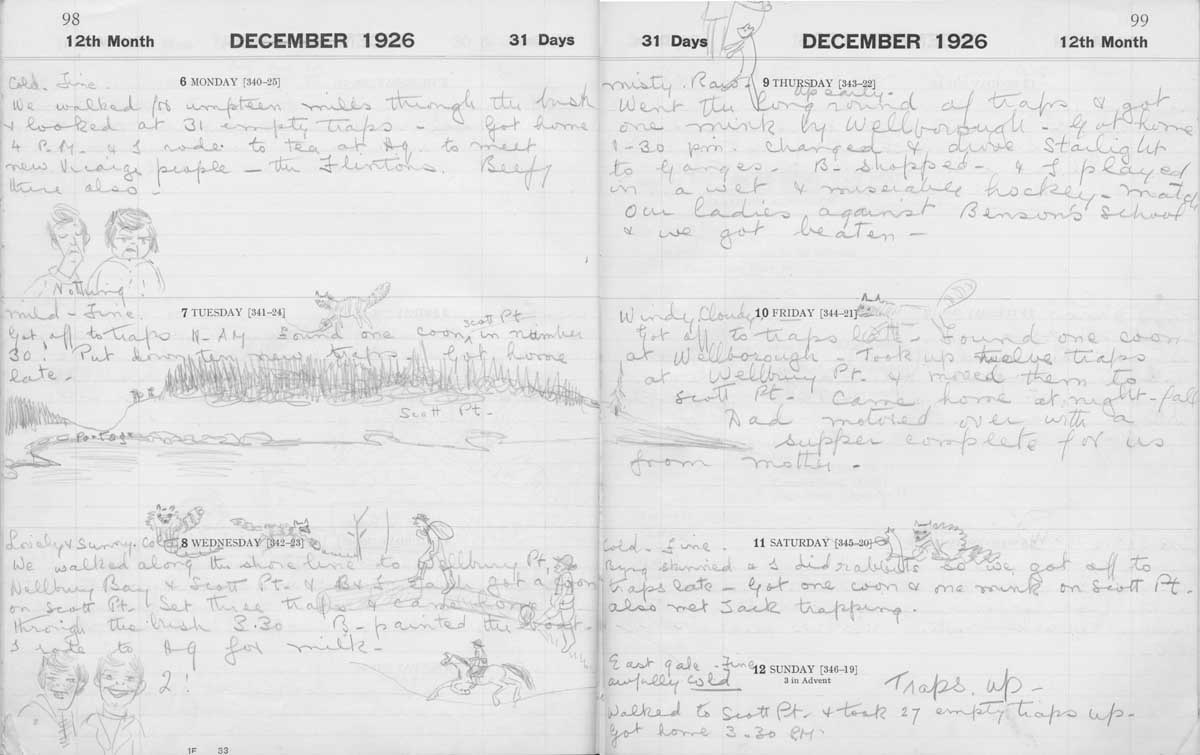 98
12th Month DECEMBER 1926 31 Days
6 MONDAY [340-25]
Cold. Fine.
We walked for umpteen miles through the bush
& looked at 31 empty traps - Got home
4 P.M. & I rode to tea at Ag. to meet
new Vicarage people - the Flintons. Beefy
there also -
Nothing!
7 TUESDAY [341-24]
mild - Fine.
Got off to traps 11- AM Found one coon, Scott Pt in number
30! Put down ten new traps Got home
late -
Portage
Scott Pt -
8 WEDNESDAY [342-23]
Lovely & sunny. Cold
We walked along the shore line to Wellbury Pt,
Wellbury Bay & Scott Pt. & B & I each got a coon
on Scott Pt. Set three traps & came home
through the bush 3.30 B - painted the boat -
I rode to Ag for milk -
2!
1F 33
99
31 Days DECEMBER 1926 12th Month
9 THURSDAY [343-22]
misty. Rain. Up early.
Went the long round of traps & got
one mink by Wellborough - Got home
1-30 pm. changed & drove Starlight
to Ganges. B- shopped - & I played
in a wet & miserable hockey - match
Our ladies against Benson's School
& we got beaten -
10 FRIDAY [344-21]
Windy Cloudy
Got off to traps late - Found one coon
at Wellborough - Took up twelve traps
at Wellbury Pt. & moved them to
Scott Pt - Came home at night-fall
Dad motored over with a
supper complete for us
from mother -
11 SATURDAY [345-20]
Cold - Fine.
skinned & I did rabbits so we got off to
traps late - Got one coon & one mink on Scott Pt -
also met Jack trapping.
12 SUNDAY [346-19]
3 in Advent
East gale - Fine
awfully cold
Traps up -
Walked to Scott Pt. & took 27 empty traps up -
Got home 3.30 PM.